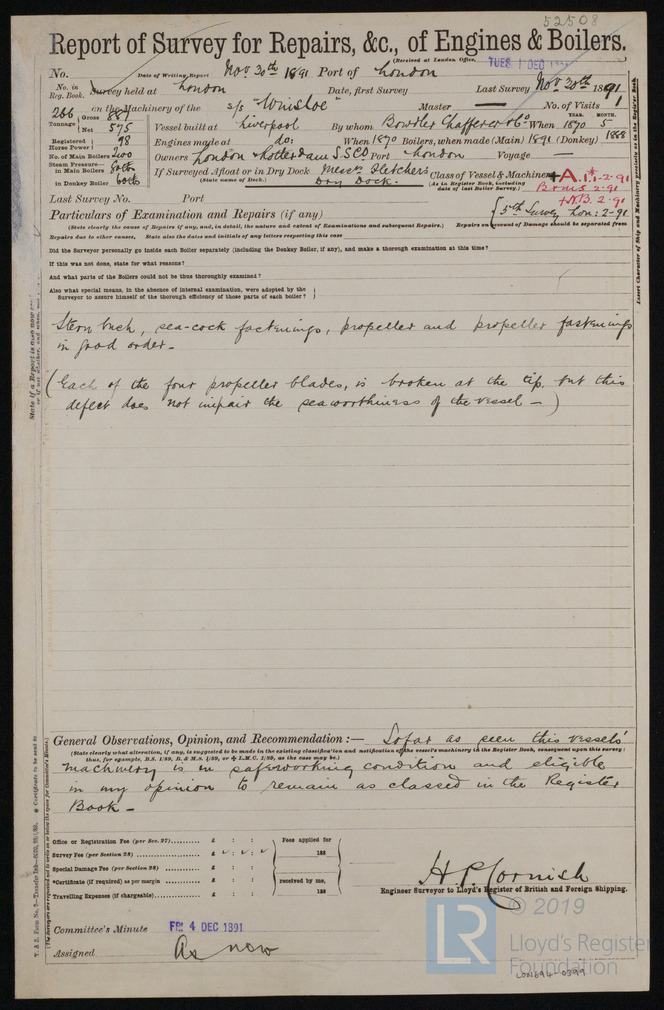 52508
Report of Survey for Repairs, &c., of Engines & Boilers.
(Received at London Office, TUES 1 DEC 1891
No. Date of Writing Report Nov 30th 1891 Port of London
No. in Reg. Book. Survey held at London Date, first Survey Last Survey Nov 30th 1891
266 on the Machinery of the s/s "Wnisloe" Master — No. of Visits 1
Tonnage Gross 887 Net 575 Vessel built at Liverpool By whom Bowdler Chaffer & Co When YEAR. 1870 MONTH. 5
Registered Horse Power 98 Engines made at do: When 1870 Boilers, when made (Main) 1891 (Donkey) 1888
No. of Main Boilers two Owners London & Rotterdam S.S.Co Port London Voyage —
Steam Pressure— in Main Boilers 80lbs If Surveyed Afloat or in Dry Dock Messrs Fletchers Class of Vessel & Machinery +A.1.*-2-91
in Donkey Boiler 60lbs (State name of Dock.) Dry Dock. (As in Register Book, including date of last Boiler Survey.) B&MS 2-91
+NB. 2-91
Last Survey No. Port {5th Survey Lon: 2-91
Particulars of Examination and Repairs (if any)
(State clearly the cause of Repairs if any, and, in detail, the nature and extent of Examinations and subsequent Repairs.) Repairs on account of Damage should be separated from
Repairs due to other causes, State also the dates and initials of any letters respecting this case
Did the Surveyor personally go inside each Boiler separately (including the Donkey Boiler, if any), and make a thorough examination at this time?
If this was not done, state for what reasons?
And what parts of the Boilers could not be thus thoroughly examined?
Also what special means, in the absence of internal examination, were adopted by the
Surveyor to assure himself of the thorough efficiency of those parts of each boiler?
Stern bush, sea-cock fastenings, propeller and propeller fastenings
in good order.—
(Each of the four propeller blades, is broken at the tip, but this
defect does not impair the seaworthiness of the vessel—)
General Observations, Opinion, and Recommendation :— So far as seen this vessels'
(State clearly what alteration, if any, is suggested to be made in the existing classification and notification of the vessel's machinery in the Register Book, consequent upon this survey;
thus, for example, B.S. 1/89, B. & M.S. 1/89, or ✠ L.M.C. 1/89, as the case may be.)
machinery is in safe working condition and eligible
in my opinion to remain as classed in the Register
Book—
Office or Registration Fee (per Sec. 27) £ : : Fees applied for
Survey Fee (per Section 28) £ : : 188
Special Damage Fee (per Section 28) £ : :
*Certificate (if required) as per margin £ : : received by me,
Travelling Expenses (if chargeable) £ : : 188
H P Cornish
Engineer Surveyor to Lloyd's Register of British and Foreign Shipping.
Committee's Minute FRI 4 DEC 1891
Assigned As now
LR © 2019
Lloyd's Register
Foundation
LON694-0399